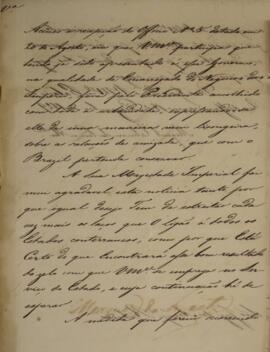 Accuso a recepção do Officio Nº 5 datado em
20 de Agosto, em que VMce participa que
tendo já sido apresentado a esse Governo,
na qualidade de Encarregado de Negocios do
Imperio, fora pelo Presidente acolhido
com toda a urbanidade, expressando-se
elle de uma maneira mui lisongeira,
sobre as relações de amizade, que com o
Brazil pertende conservar.
A Sua Magestade Imperial foi
mui agradavel esta noticia tanto por
que igual desejo Tem de estreitar cada
vez mais os laços que O ligão á todos os
Estados conterraneos, como por que Está
Certo de que encontrará esse bom resultado
do zelo com que VMce se emprega no Ser-
viço do Estado, e cuja continuação hé de
esperar.
A medida que forem